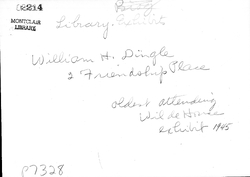 02214
MONTCLAIR
LIBRARY
Library Exhibit
William H. Dingle
2 Friendship Place
oldest attending
exhibit 1945
P7328